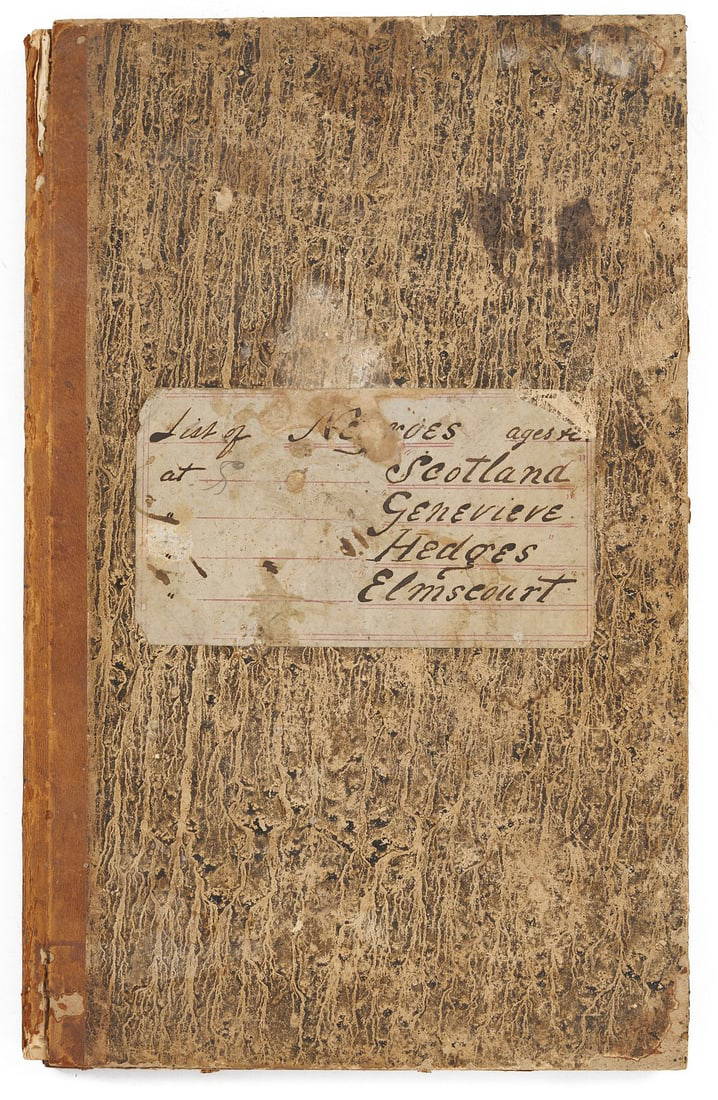 List of Negroes ages &c.
at Scotland
" Genevieve
" Hedges
" Elmscourt